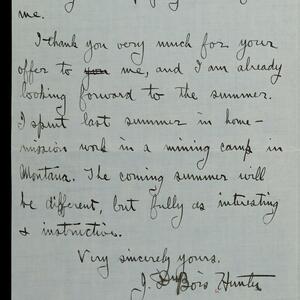 me.
I thank you very much for your
offer to me, and I am already
looking forward to the summer.
I spent last summer in home-
mission work in a mining camp in
Montana. The coming summer will
be different, but fully as interesting
& instructive.
Very sincerely yours,
J. DuBois Hunter